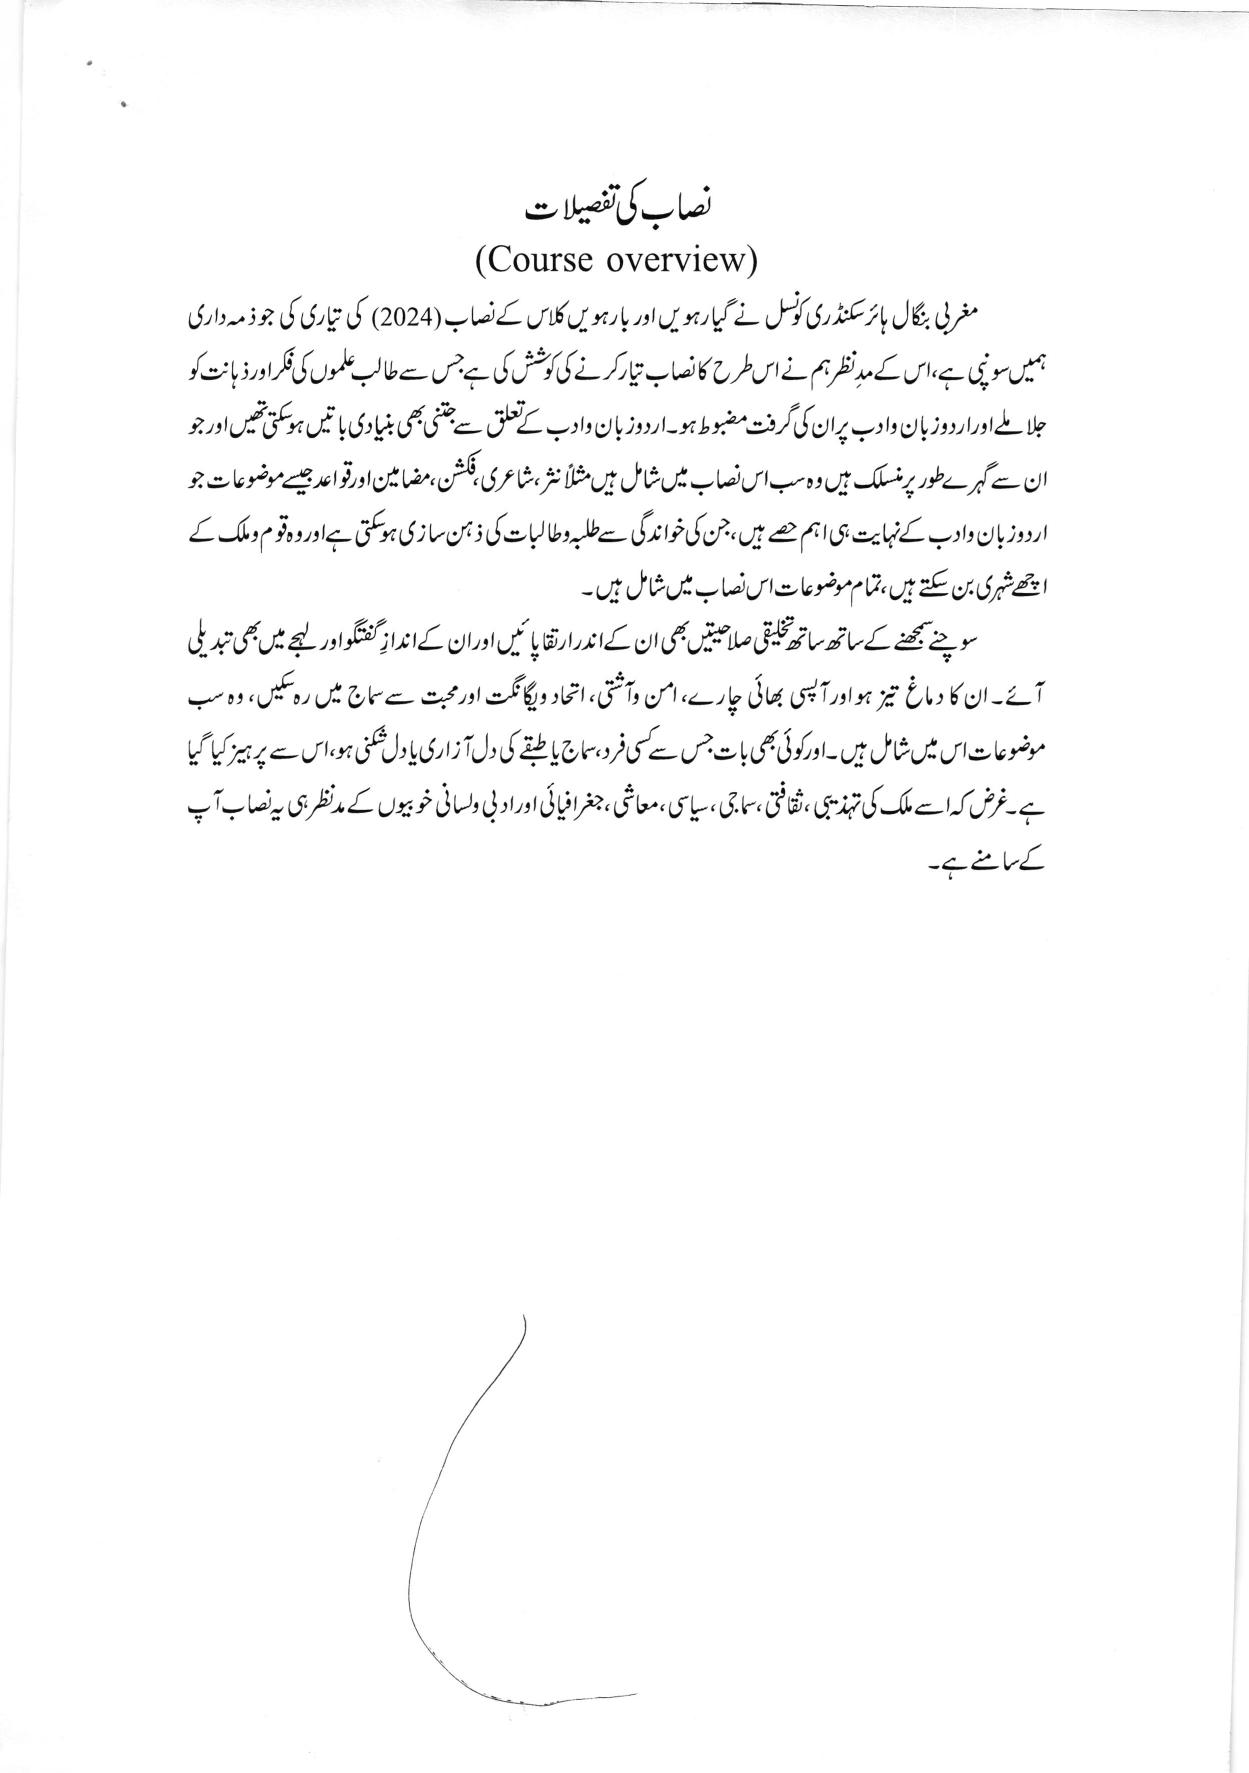 نصاب کی تفصیلات
(Course overview)
مغربی بنگال ہائر سکنڈری کونسل نے گیارہویں اور بارہویں کلاس کے نصاب (2024) کی تیاری کی جو ذمہ داری
ہمیں سونپی ہے، اس کے مدِنظر ہم نے اس طرح کا نصاب تیار کرنے کی کوشش کی ہے جس سے طالب علموں کی فکر اور ذہانت کو
جلا ملے اور اردو زبان و ادب پر ان کی گرفت مضبوط ہو۔ اردو زبان و ادب کے تعلق سے جتنی بھی بنیادی باتیں ہوسکتی تھیں اور جو
ان سے گہرے طور پر منسلک ہیں وہ سب اس نصاب میں شامل ہیں مثلاً نثر، شاعری، فکشن، مضامین اور قواعد جیسے موضوعات جو
اردو زبان و ادب کے نہایت ہی اہم حصے ہیں، جن کی خواندگی سے طلبہ و طالبات کی ذہن سازی ہوسکتی ہے اور وہ قوم و ملک کے
اچھے شہری بن سکتے ہیں، تمام موضوعات اس نصاب میں شامل ہیں۔
سوچنے سمجھنے کے ساتھ ساتھ تخلیقی صلاحیتیں بھی ان کے اندر ارتقا پائیں اور ان کے اندازِ گفتگو اور لہجے میں بھی تبدیلی
آئے۔ ان کا دماغ تیز ہو اور آپسی بھائی چارے، امن و آشتی، اتحاد ویگانگت اور محبت سے سماج میں رہ سکیں، وہ سب
موضوعات اس میں شامل ہیں۔ اور کوئی بھی بات جس سے کسی فرد، سماج یا طبقے کی دل آزاری یا دل شکنی ہو، اس سے پرہیز کیا گیا
ہے۔ غرض کہ اسے ملک کی تہذیبی، ثقافتی، سماجی، سیاسی، معاشی، جغرافیائی اور ادبی و لسانی خوبیوں کے مدنظر ہی یہ نصاب آپ
کے سامنے ہے۔